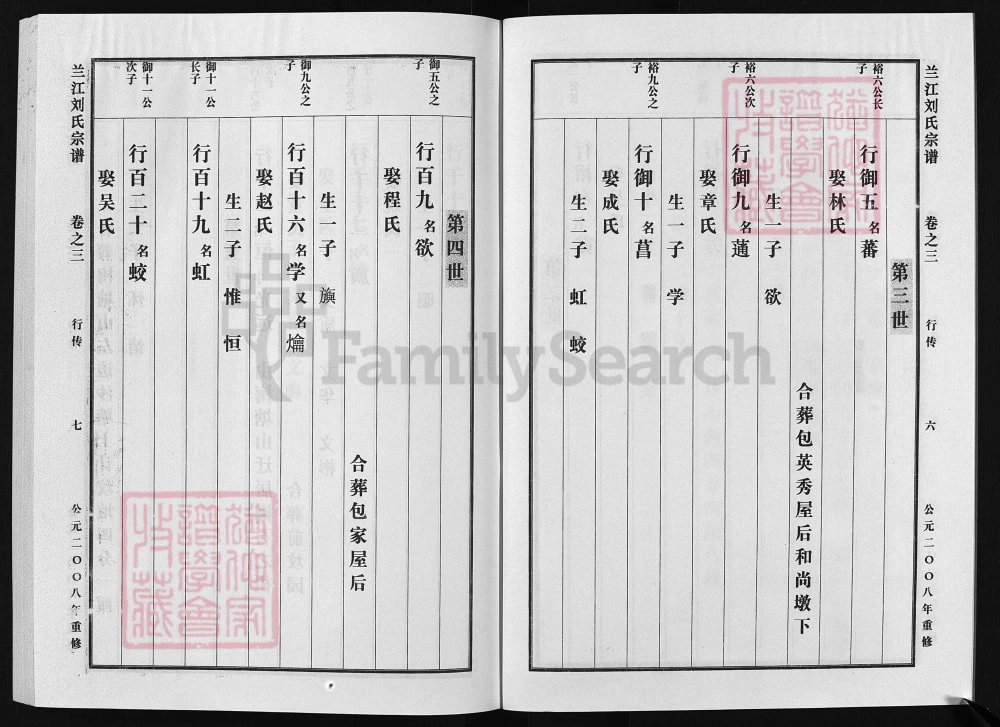 兰江刘氏宗谱 卷之三 行传 六 公元二〇〇八年重修
第三世
裕六公长子
行御五 名蕃
娶林氏
合葬包英秀屋后和尚墩下
生一子 欲
裕六公次子
行御九 名蓪
娶章氏
生一子 学
裕九公之子
行御十 名菖
娶成氏
生二子 虹 蛟
兰江刘氏宗谱 卷之三 行传 七 公元二〇〇八年重修
第四世
御五公之子
行百九 名欲
娶程氏
合葬包家屋后
生一子 旟
御九公之子
行百十六 名学 又名爚
娶赵氏
生二子 惟 恒
御十一公长子
行百十九 名虹
御十一公次子
行百二十 名蛟
娶吴氏
FamilySearch